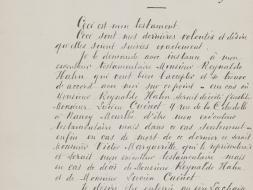 Ceci est mon testament
Ceci sont mes dernières volontés et désire
qu'elles soient suivies exactement.
Je le demande avec instance à mon
exécuteur testamentaire Monsieur Reynaldo
Hahn qui veut bien l'accepter et se trouve
d'accord avec moi sur ce point - en cas où
Monsieur Reynaldo Hahn serait décédé
Monsieur Lucien 9 rue de la Citadelle
à Nancy Meurthe être mon exécuteur
testamentaire dans ce cas seulement -
enfin en cas de mort de ce dernier ce serait
Monsieur Victor Margueritte qui le représentera
et serait mon exécuteur testamentaire mais
en cas de décès de Monsieur Reynaldo Hahn
et de Monsieur Lucien
Je désire être enterrée au